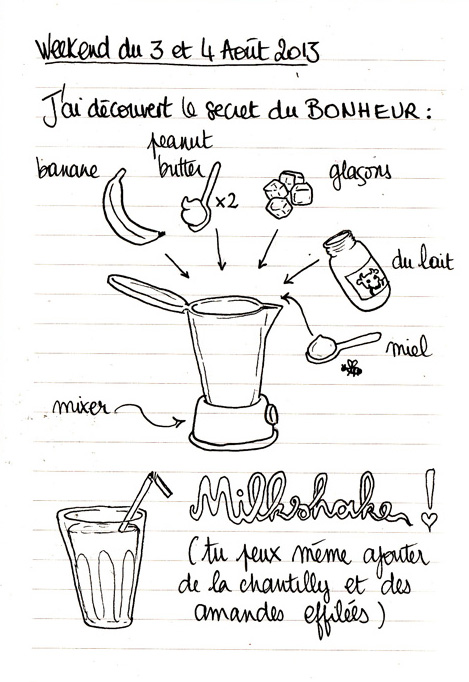 Weekend du 3 et 4 Août 2013
J'ai découvert le secret du BONHEUR :
peanut
butter
banane
x2
glaçons
du lait
miel
mixer
Milkshake !
(tu peux même ajouter
de la chantilly et des
amandes effilées)